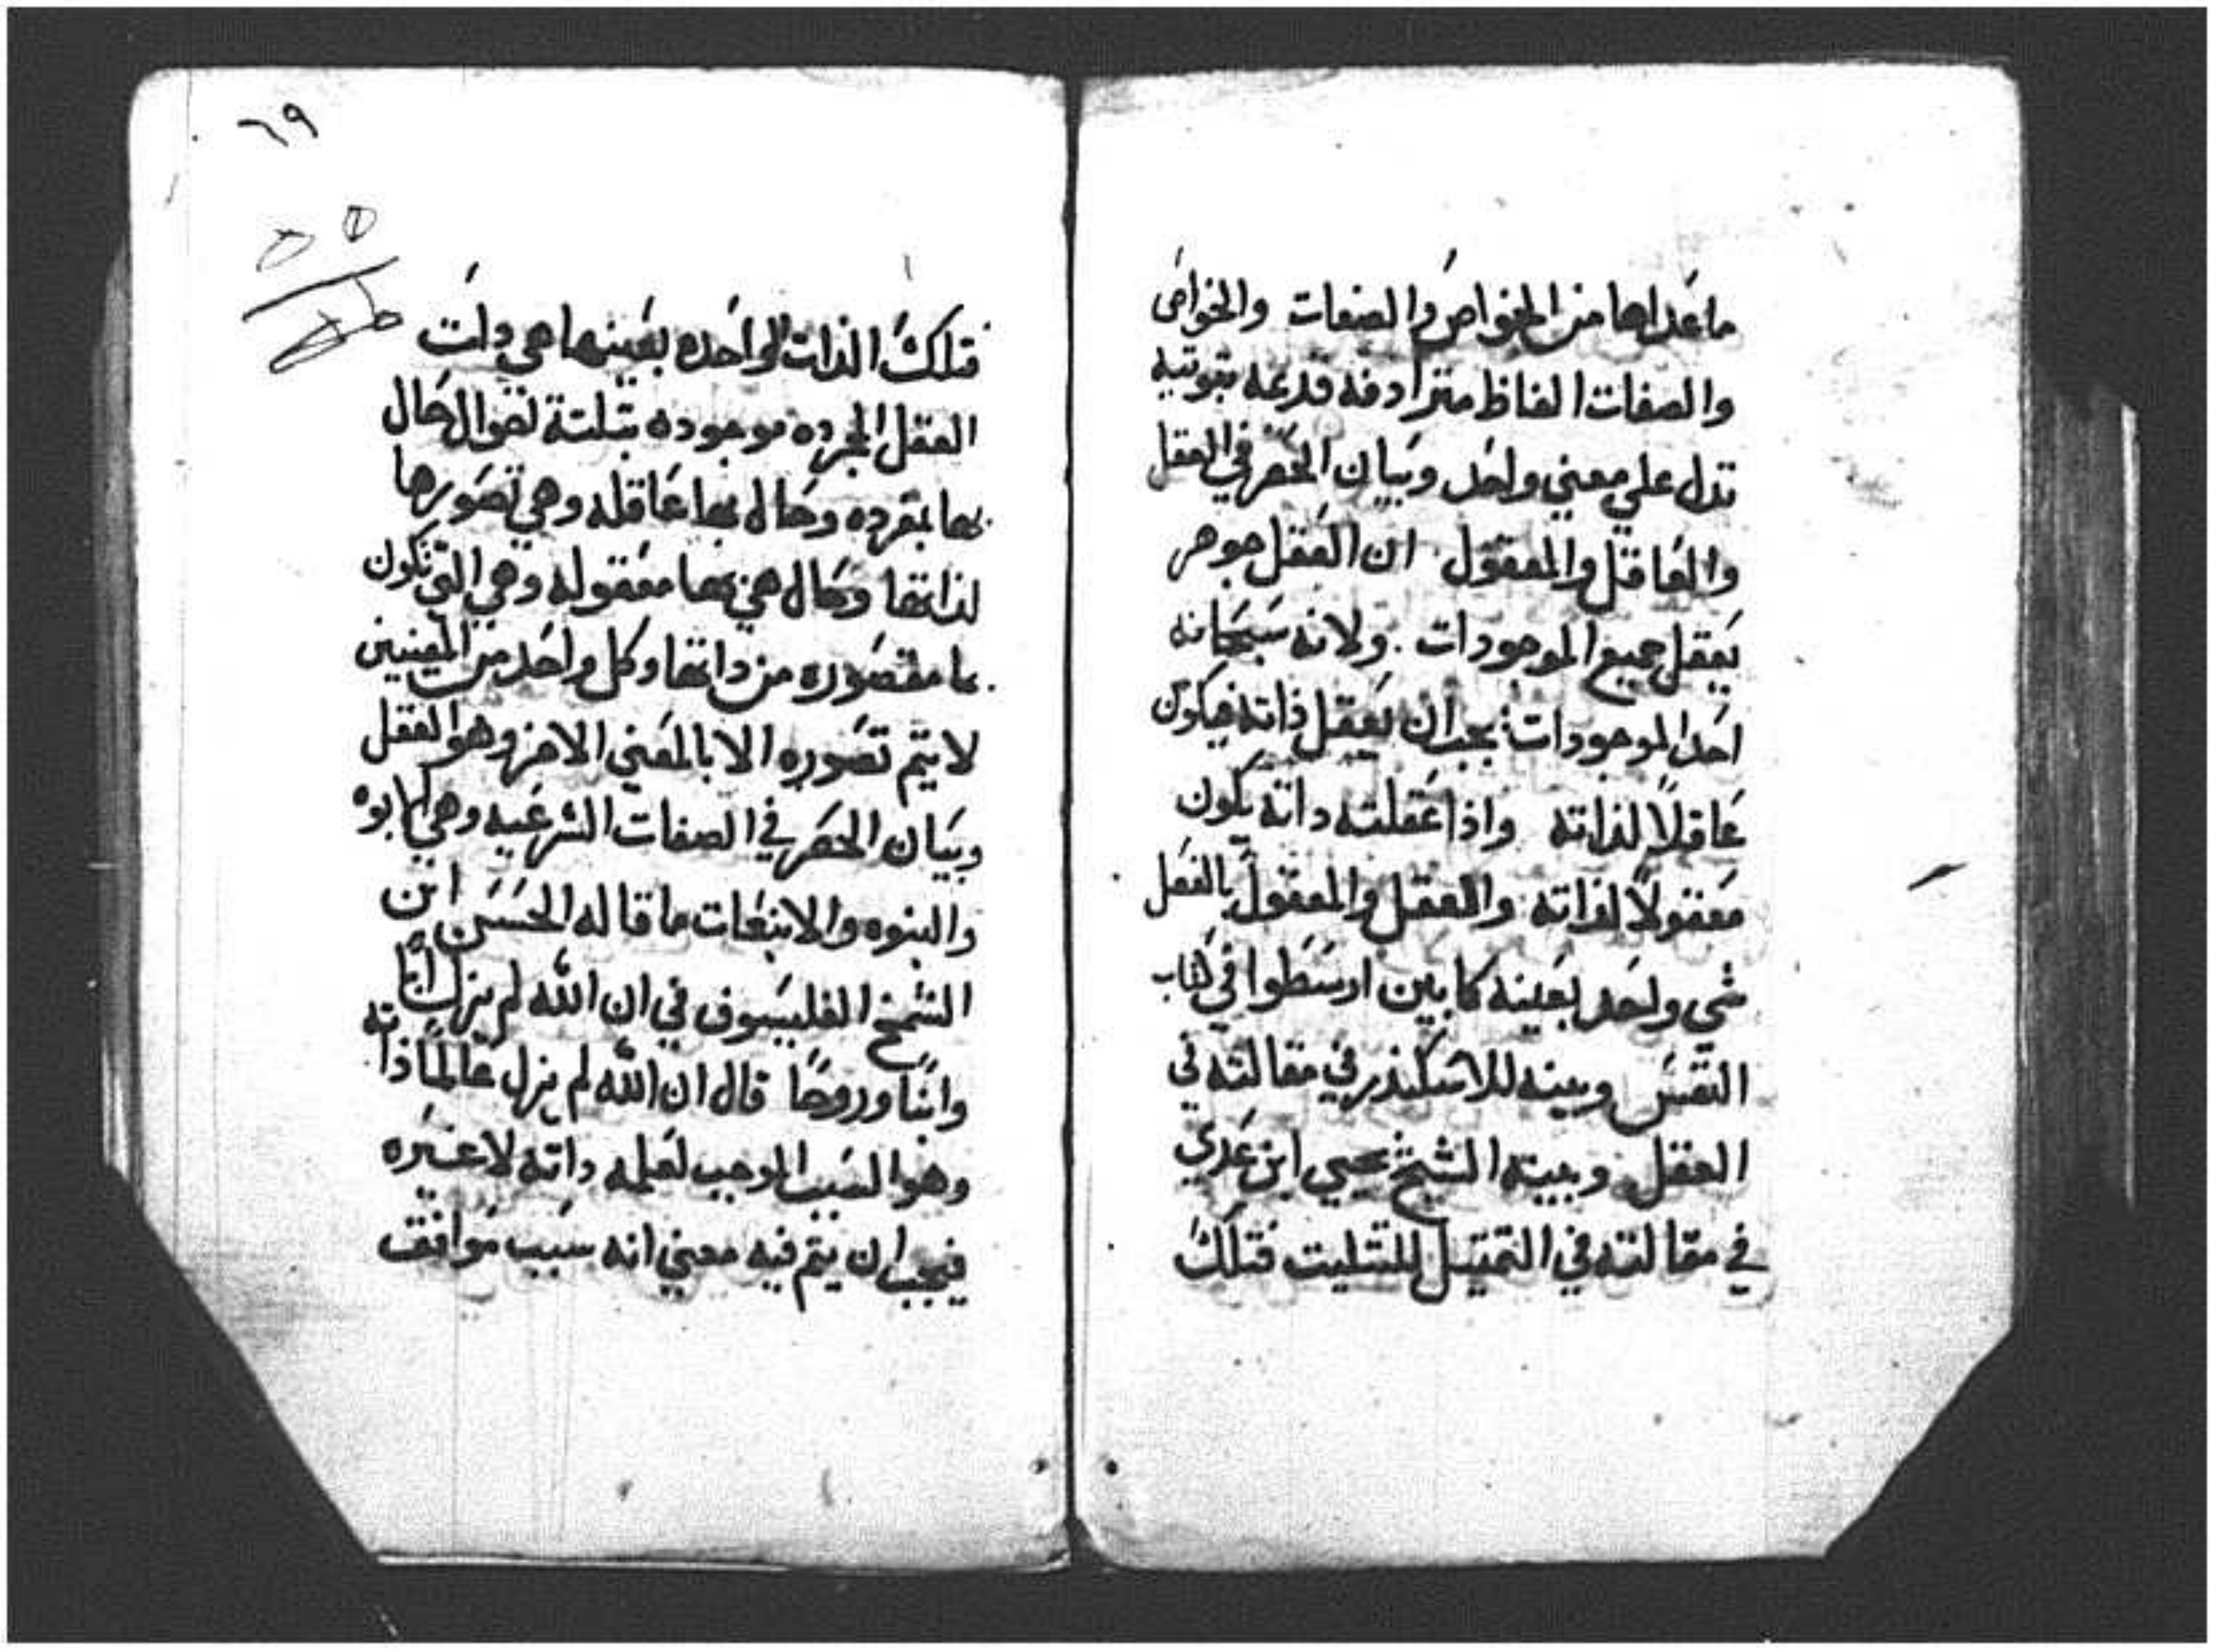 ما عداها من الخواص والصفات والخواص
والصفات الفاظ مترادفه قديمه ثبوتيه
تدل علي معني واحد وبيان الحصر في العقل
والعاقل والمعقول ان العقل جوهر
يعقل جميع الموجودات ولانه سبحانه
احد الموجودات يجب ان يعقل ذاته فيكون
عاقلاً لذاته واذا عقلته داته يكون
معقولاً لذاته والعقل والمعقول بالفعل
شي واحد بعينه كما بين ارسطوا في كتاب
النفس وبينه للاسكندر في مقالته في
العقل وبينه الشيخ يحيي ابن عدي
في مقالته في التمتيل للتتليت فتلك
فتلك الذات الواحده بعينها هي دات
العقل المجرده موجوده بتلتة احوال حال
بها مجرده وحال بها عاقله وهي تصورها
لذاتها وحال هي بها معقوله وهي التي تكون
بها متصوره من داتها وكل واحد من المعنيين
لا يتم تصوره الا بالمعني الاخر وهو العقل
وبيان الحصر في الصفات الشرعيه وهي الابوه
والبنوه والانبعات ما قاله الحسن ابن
الشمخ الفليسوف في ان الله لم يزل ابًا
وابنًا وروحًا قال ان الله لم يزل عالمًا ذاته
وهو السبب الموجب لعلمه داته لا غيره
فيجب ان يتم فيه معني انه سبب موافق
٦٩